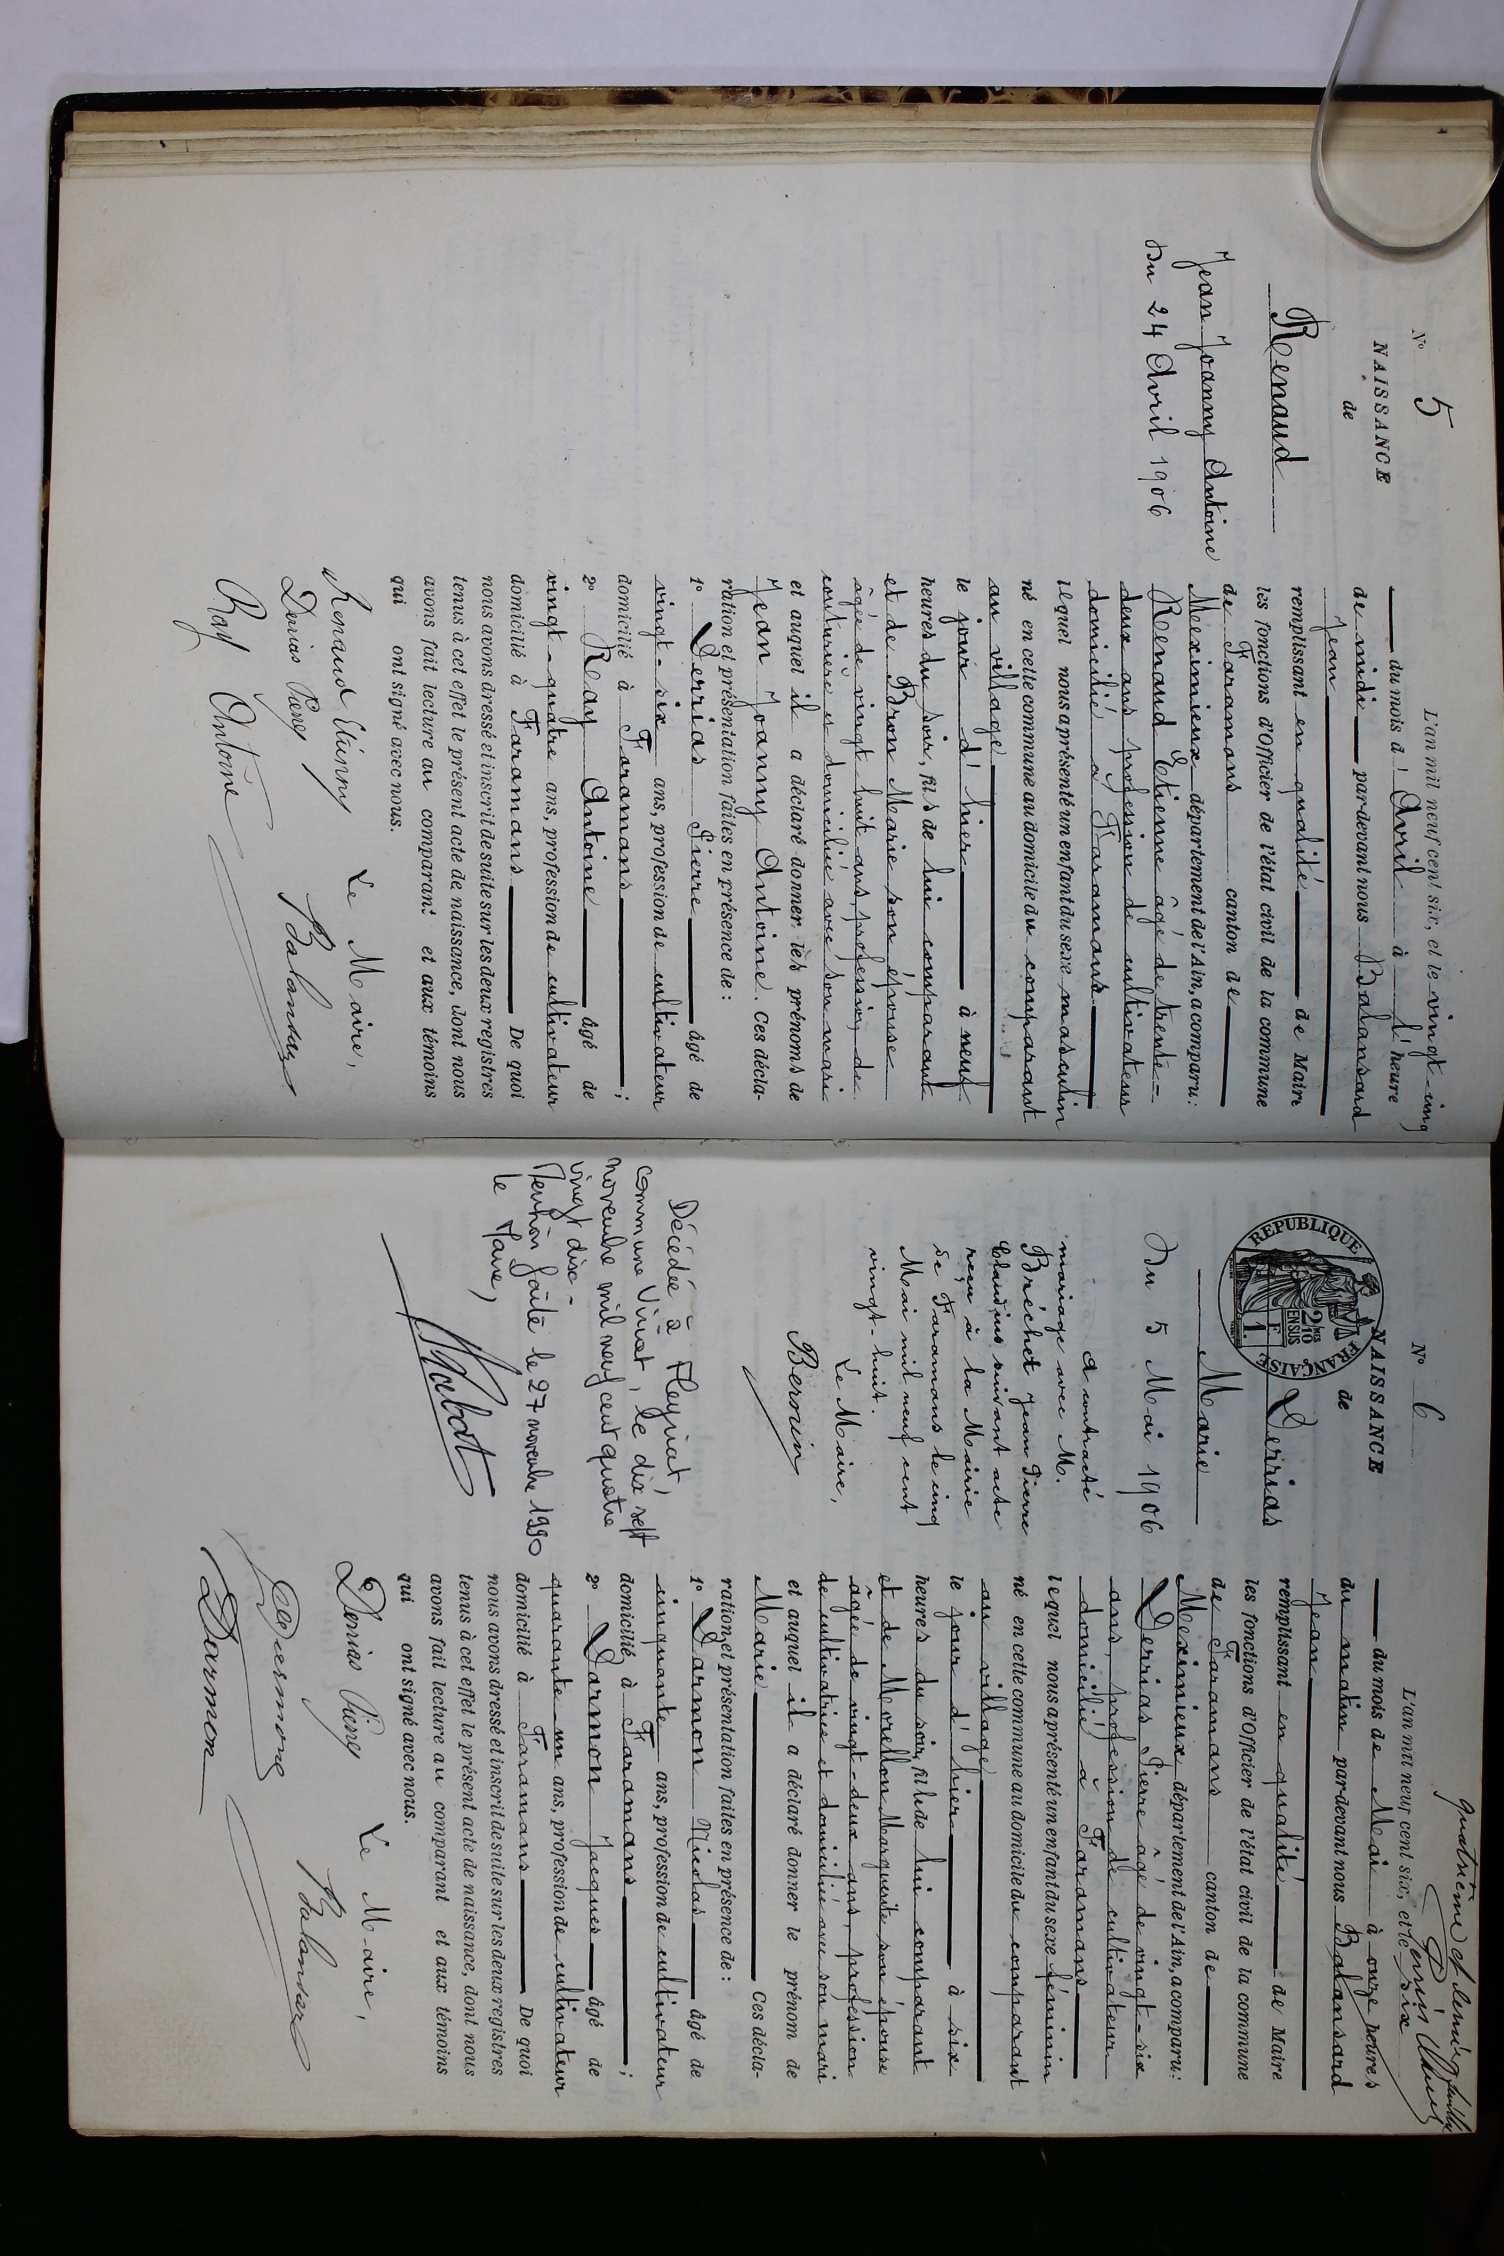 N° 5
NAISSANCE
de
Renaud
Jean Joanny Antoine
Du 24 Avril 1906
L'an mil neuf cent six, et le vingt-cinq
du mois d' Avril à l' heure
de midi par-devant nous Balansard
Jean
remplissant en qualité de Maire
les fonctions d'Officier de l'état civil de la commune
de Faramans canton de
Meximieux département de l'Ain, a comparu:
Renaud Etienne âgé de trente-
deux ans profession de cultivateur
domicilié à Faramans
lequel nous a présenté un enfant du sexe masculin
né en cette commune au domicile du comparant
au village
le jour d'hier à neuf
heures du soir, fils de lui comparant
et de Bron Marie son épouse
âgée de vingt huit ans, profession de
couturière et domiciliée avec son mari
et auquel il a déclaré donner les prénoms de
Jean Joanny Antoine. Ces décla-
ration et présentation faites en présence de:
1° Derrias Pierre âgé de
vingt-six ans, profession de cultivateur
domicilié à Faramans ;
2° Reay Antoine âgé de
vingt-quatre ans, profession de cultivateur
domicilié à Faramans De quoi
nous avons dressé et inscrit de suite sur les deux registres
tenus à cet effet le présent acte de naissance, dont nous
avons fait lecture au comparant et aux témoins
qui ont signé avec nous.
Le Maire,
Renaud Etienne
Derrias Pierre
Balansard
Ray Antoine
N° 6
NAISSANCE
de
REPUBLIQUE FRANÇAISE
2/10 EN SUS
1 F
Derrias
Marie
Du 5 Mai 1906
A contracté
mariage avec M.
Bréchet Jean Pierre
Claudius suivant acte
reçu à la Mairie
de Faramans le cinq
Mai mil neuf cent
vingt-huit.
Le Maire,
Berouin
Décédée à Pleyriat,
commune Viriat, le dix sept
novembre mil neuf cent quatre
vingt dix-
Mention faite le 27 novembre 1990
le Maire,
quatrième et dernier feuillet
L'an mil neuf cent six, et le six
du mois de Mai à onze heures
du matin par-devant nous Balansard
Jean
remplissant en qualité de Maire
les fonctions d'Officier de l'état civil de la commune
de Faramans canton de
Meximieux département de l'Ain, a comparu:
Derrias Pierre âgé de vingt-six
ans, profession de cultivateur
domicilié à Faramans
lequel nous a présenté un enfant du sexe féminin
né en cette commune au domicile du comparant
au village
le jour d'hier à six
heures du soir, fille de lui comparant
et de Morellon Marguerite son épouse
âgée de vingt-deux ans, profession
de cultivatrice et domiciliée avec son mari
et auquel il a déclaré donner le prénom de
Marie Ces décla-
ration et présentation faites en présence de:
1° Darmon Nicolas âgé de
cinquante ans, profession de cultivateur
domicilié à Faramans ;
2° Darmon Jacques âgé de
quarante-un ans, profession de cultivateur
domicilié à Faramans De quoi
nous avons dressé et inscrit de suite sur les deux registres
tenus à cet effet le présent acte de naissance, dont nous
avons fait lecture au comparant et aux témoins
qui ont signé avec nous.
Le Maire,
Derrias Pierre
Balansard
Darmon